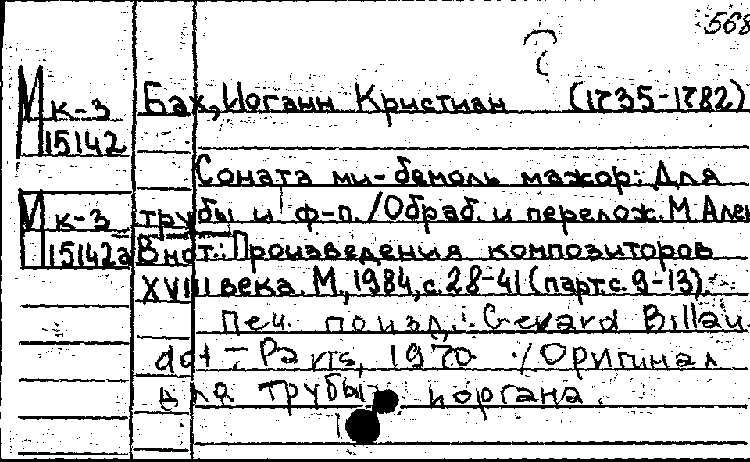 568
М к-3 Бах, Иоганн Кристиан (1735-1782)
15142
Соната ми-бемоль мажор: Для
М к-3 трубы и ф-п. /Обраб. и перелож. М. Ален
15142а В нот.: Произведения композиторов
XVIII века. М., 1984, с. 28-41 (парт. с. 9-13).
Печ. по изд.: Gerard Billau
dot – Paris, 1970. /Оригинал
для трубы и органа.